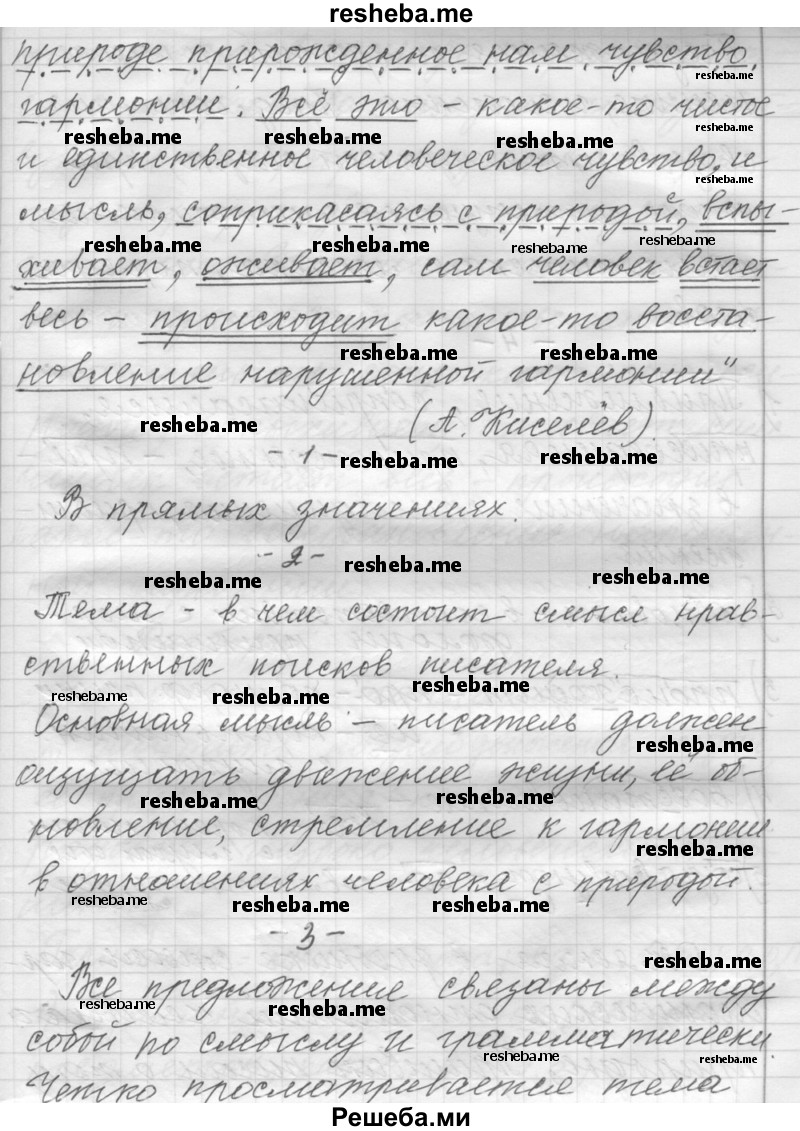 resheba.me
природе прирожденное нам чувство
гармонии. Всё это – какое-то чистое
и единственное человеческое чувство, и
мысль, соприкасаясь с природой, вспы-
хивает, оживает, сам человек встаёт
весь – происходит какое-то восста-
новление нарушенной гармонии"
(А. Киселёв).
- 1 -
В прямых значениях.
- 2 -
Тема - в чем состоит смысл нрав-
ственных поисков писателя.
Основная мысль – писатель должен
ощущать движение жизни, её об-
новление, стремление к гармонии
в отношениях человека с природой.
- 3 -
Все предложения связаны между
собой по смыслу и грамматически.
Четко просматривается тема
Решеба.ми